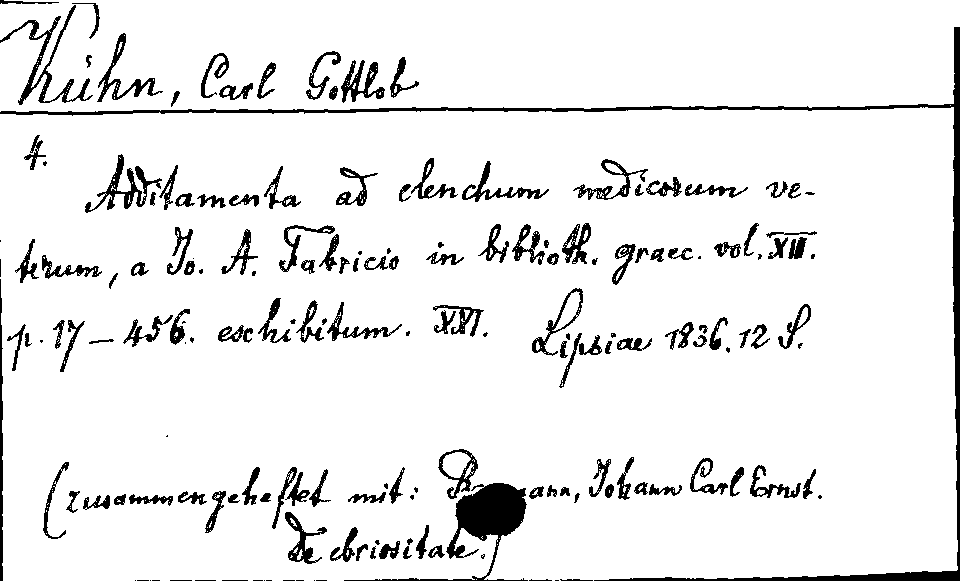 Kühn, Carl Gottlob
4.
Additamenta ad elenchum medicorum ve-
terum, a Jo. A. Fabricio in biblioth. graec. vol. XII.
p. 17 – 456. exhibitum. XXI. Lipsiae 1836. 12 S.
(zusammengeheftet mit: Johann Carl Ernst.
De ebriositate.)